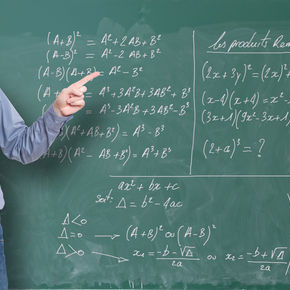 (A+B)² = A²+2AB+B²
(A-B)² = A²-2AB+B²
(A-B)(A+B) = A²-B²
(A+ = A³+3A²B+3AB²+B³
= A³-3A²B+3AB²-B³
)(A²+AB+B²) = A³-B³
+B)(A²-AB+B²) = A³+B³
les produits Rem
(2x+3y)² = (2x)²+
(x-4)(x+4) = x²-
(3x+1)(9x²-3x+1)
(2+a)³ = ?
ax²+bx+c
soit: Δ = b²-4ac
Δ<0
Δ=0 → (A+B)² ou (A-B)²
Δ>0 → x₁ = -b-√Δ / 2a ou x₂ = -b+√Δ / 2a